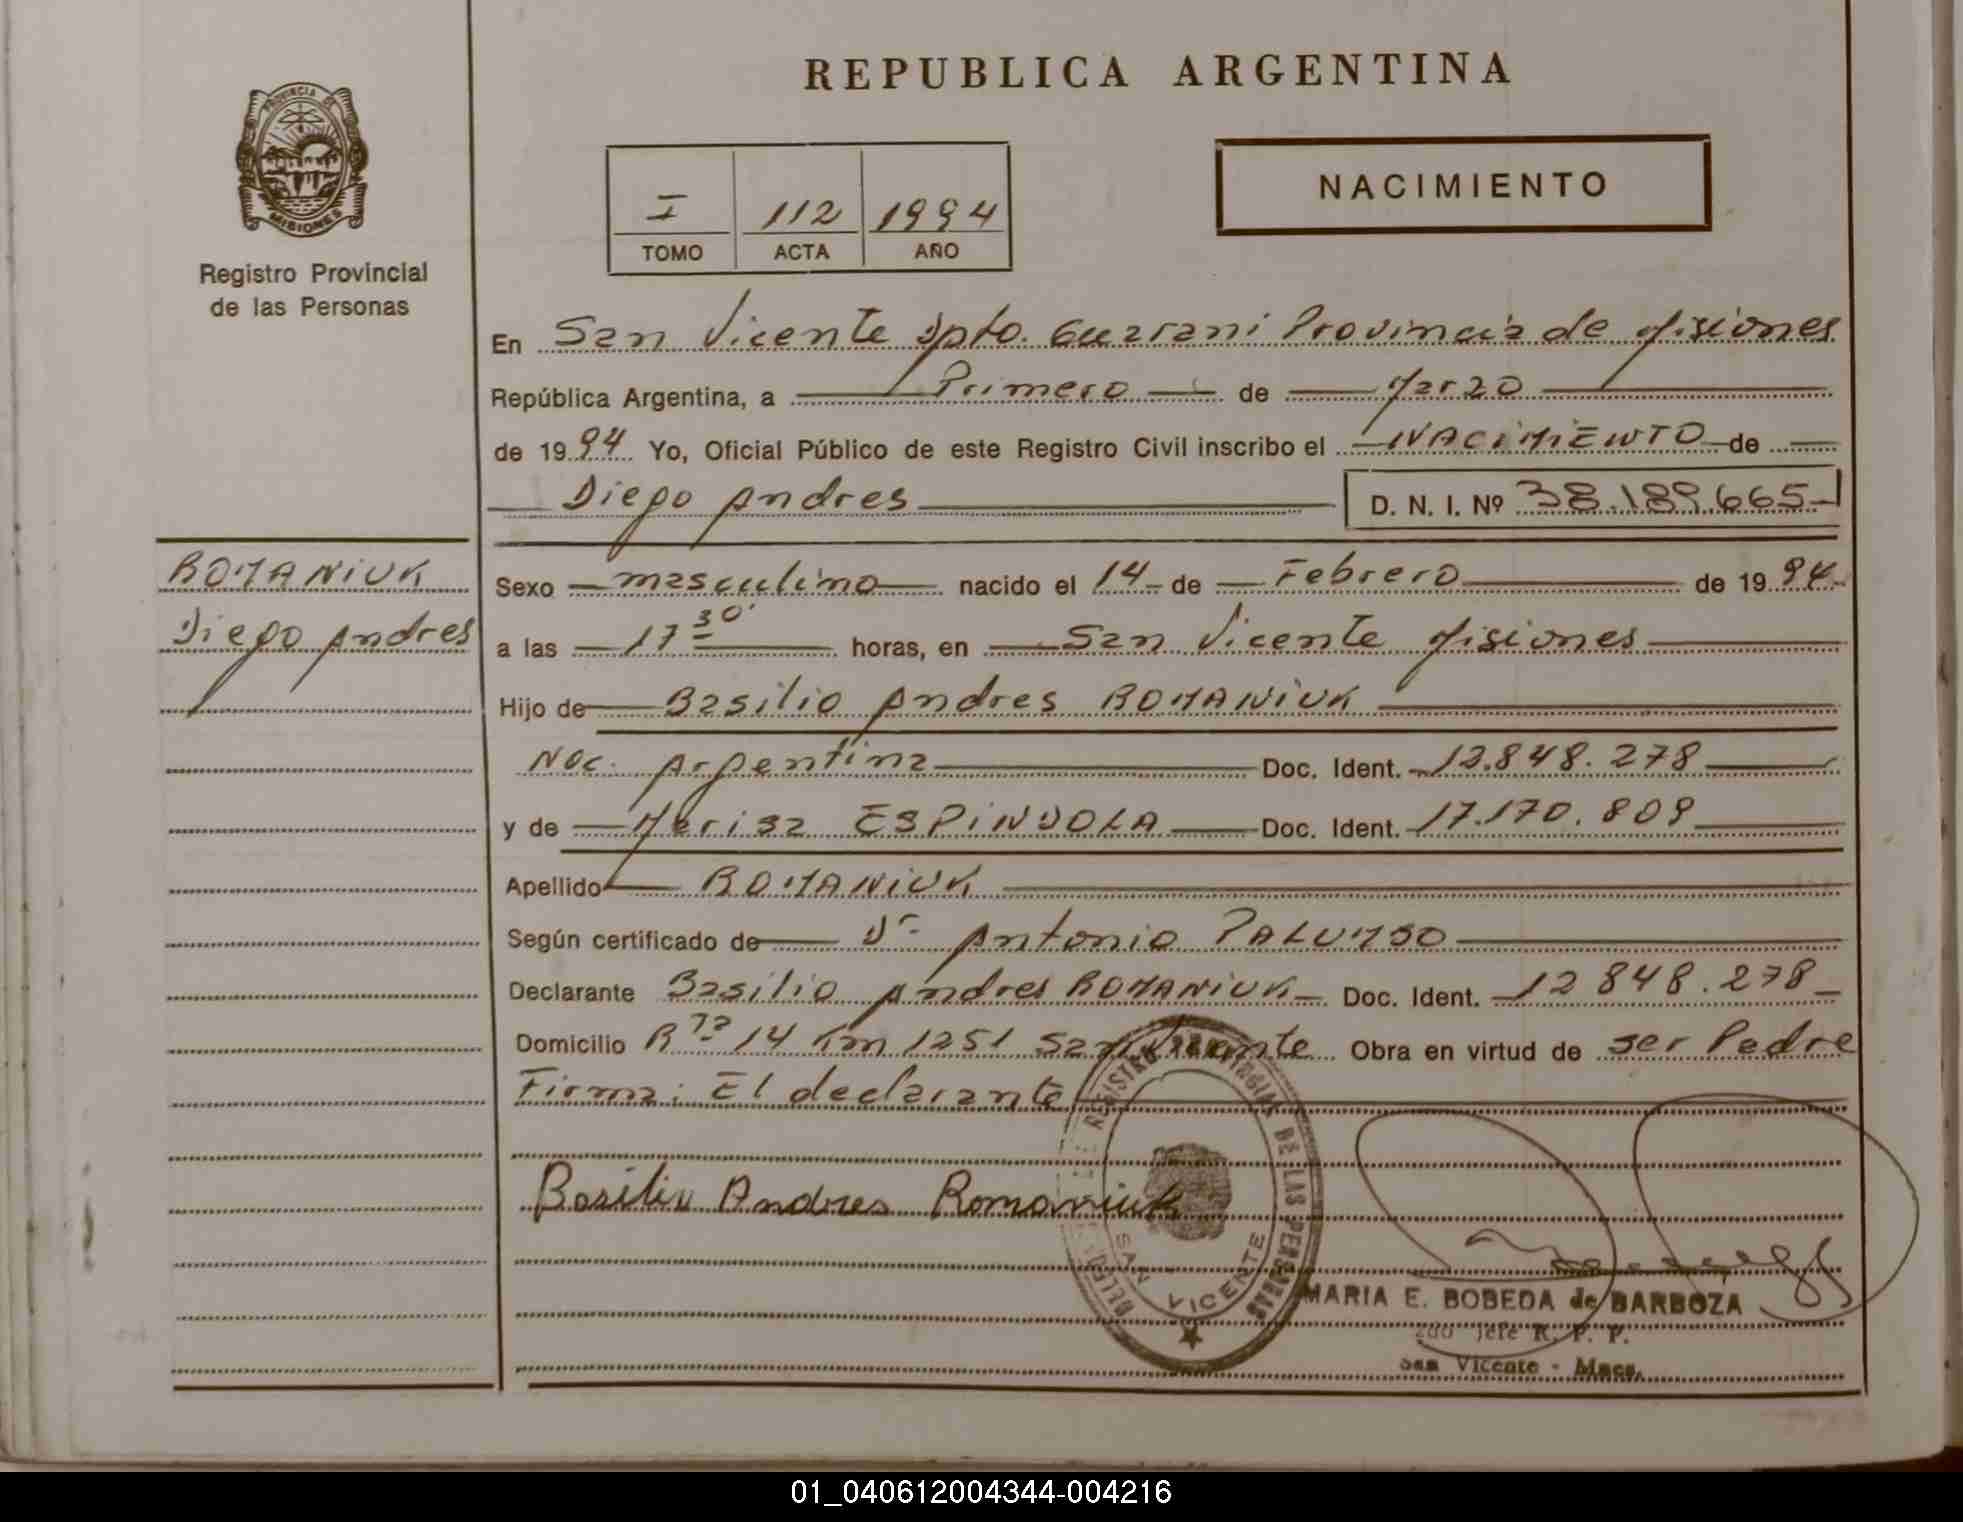 REPUBLICA ARGENTINA
PROVINCIA DE
MISIONES
Registro Provincial
de las Personas
I 112 1994
TOMO ACTA AÑO
NACIMIENTO
En San Vicente Dpto. Guarani Provincia de Misiones
República Argentina, a Primero de Marzo
de 1994 Yo, Oficial Público de este Registro Civil inscribo el NACIMIENTO de
Diego Andres D. N. I. Nº 38.189.665
ROMANIUK
Diego Andres
Sexo masculino nacido el 14 de Febrero de 1994
a las 17 30' horas, en San Vicente Misiones
Hijo de Basilio Andres ROMANIUK
Nac. Argentina Doc. Ident. 12.848.278
y de Marisa ESPINDOLA Doc. Ident. 17.170.809
Apellido ROMANIUK
Según certificado de Dr. Antonio PALUMBO
Declarante Basilio Andres ROMANIUK Doc. Ident. 12 848.278
Domicilio Rta 14 Km 1251 San Vicente Obra en virtud de ser Padre
Firma: El declarante
Basilio Andres Romaniuk
REGISTRO PROVINCIAL DE LAS PERSONAS
SAN VICENTE
MARIA E. BOBEDA de BARBOZA
2do Jefe R. P. P.
San Vicente - Mnes.
01_040612004344-004216